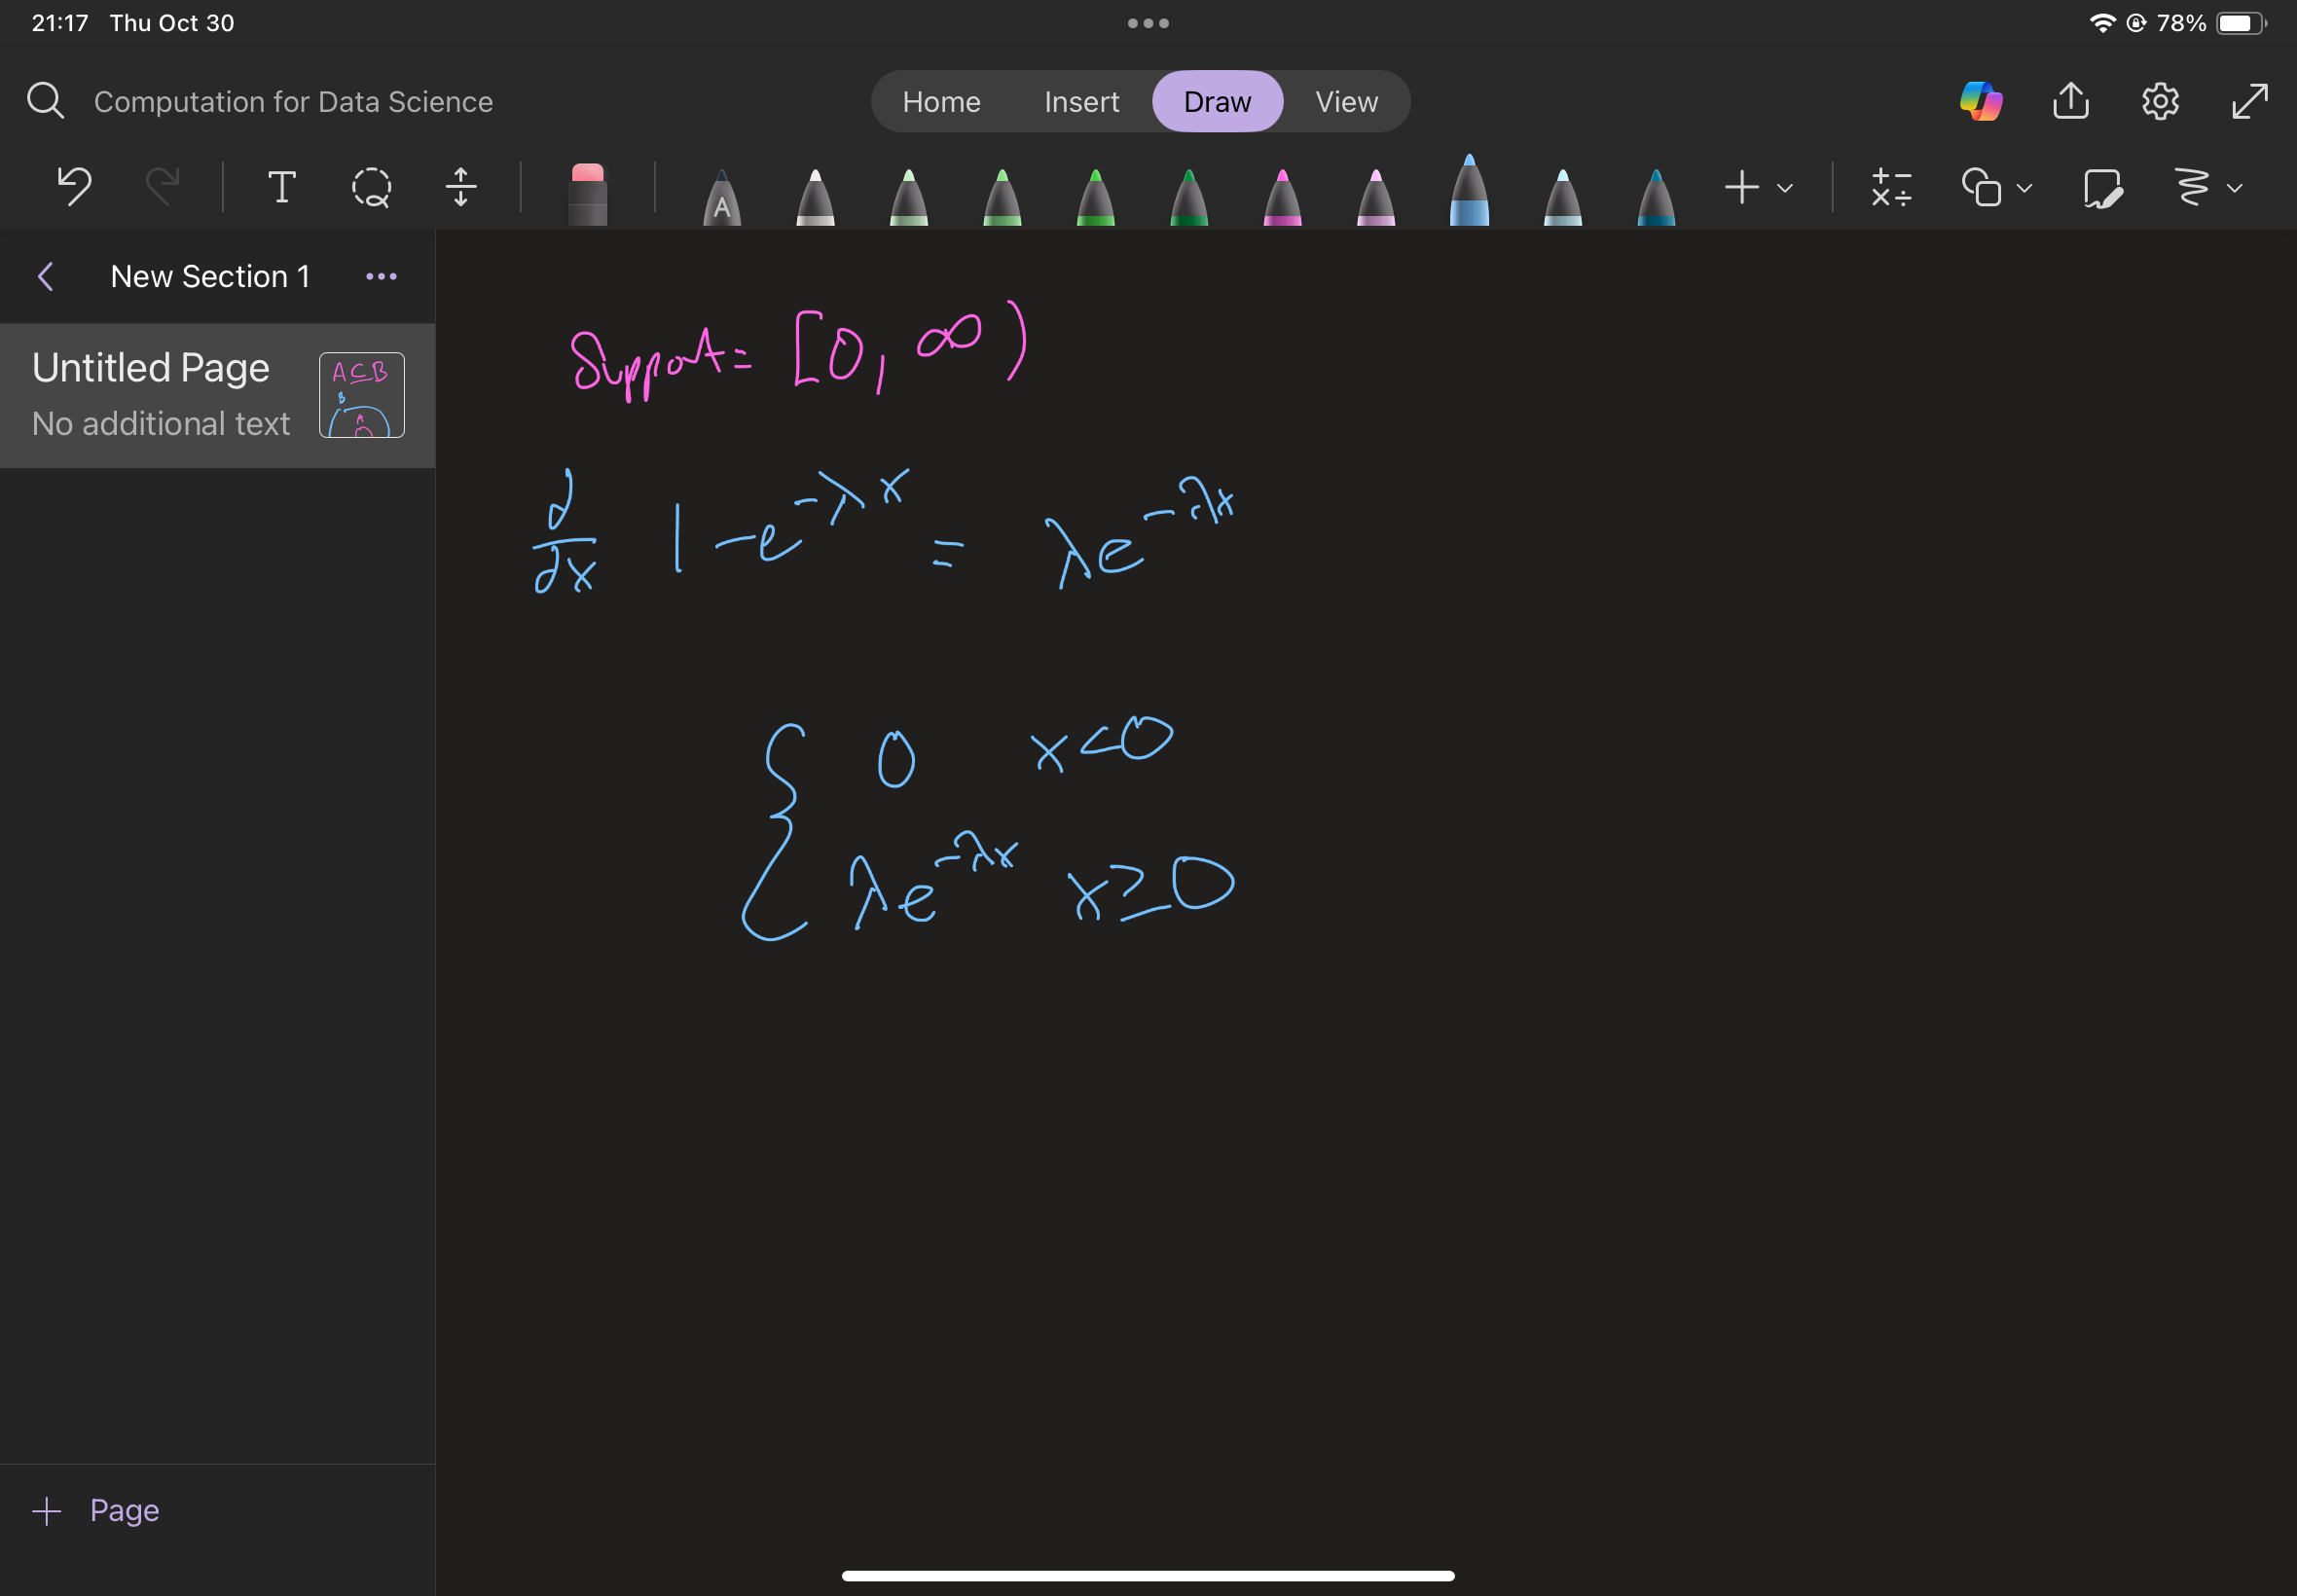 21:17 Thu Oct 30 78%
Computation for Data Science Home Insert Draw View
T A
New Section 1
Untitled Page
No additional text
A ⊆ B
B
A
Support = [0, ∞)
d/dx 1 - e^{-λx} = λe^{-λx}
{ 0 x<0
λe^{-λx} x≥0
+ Page